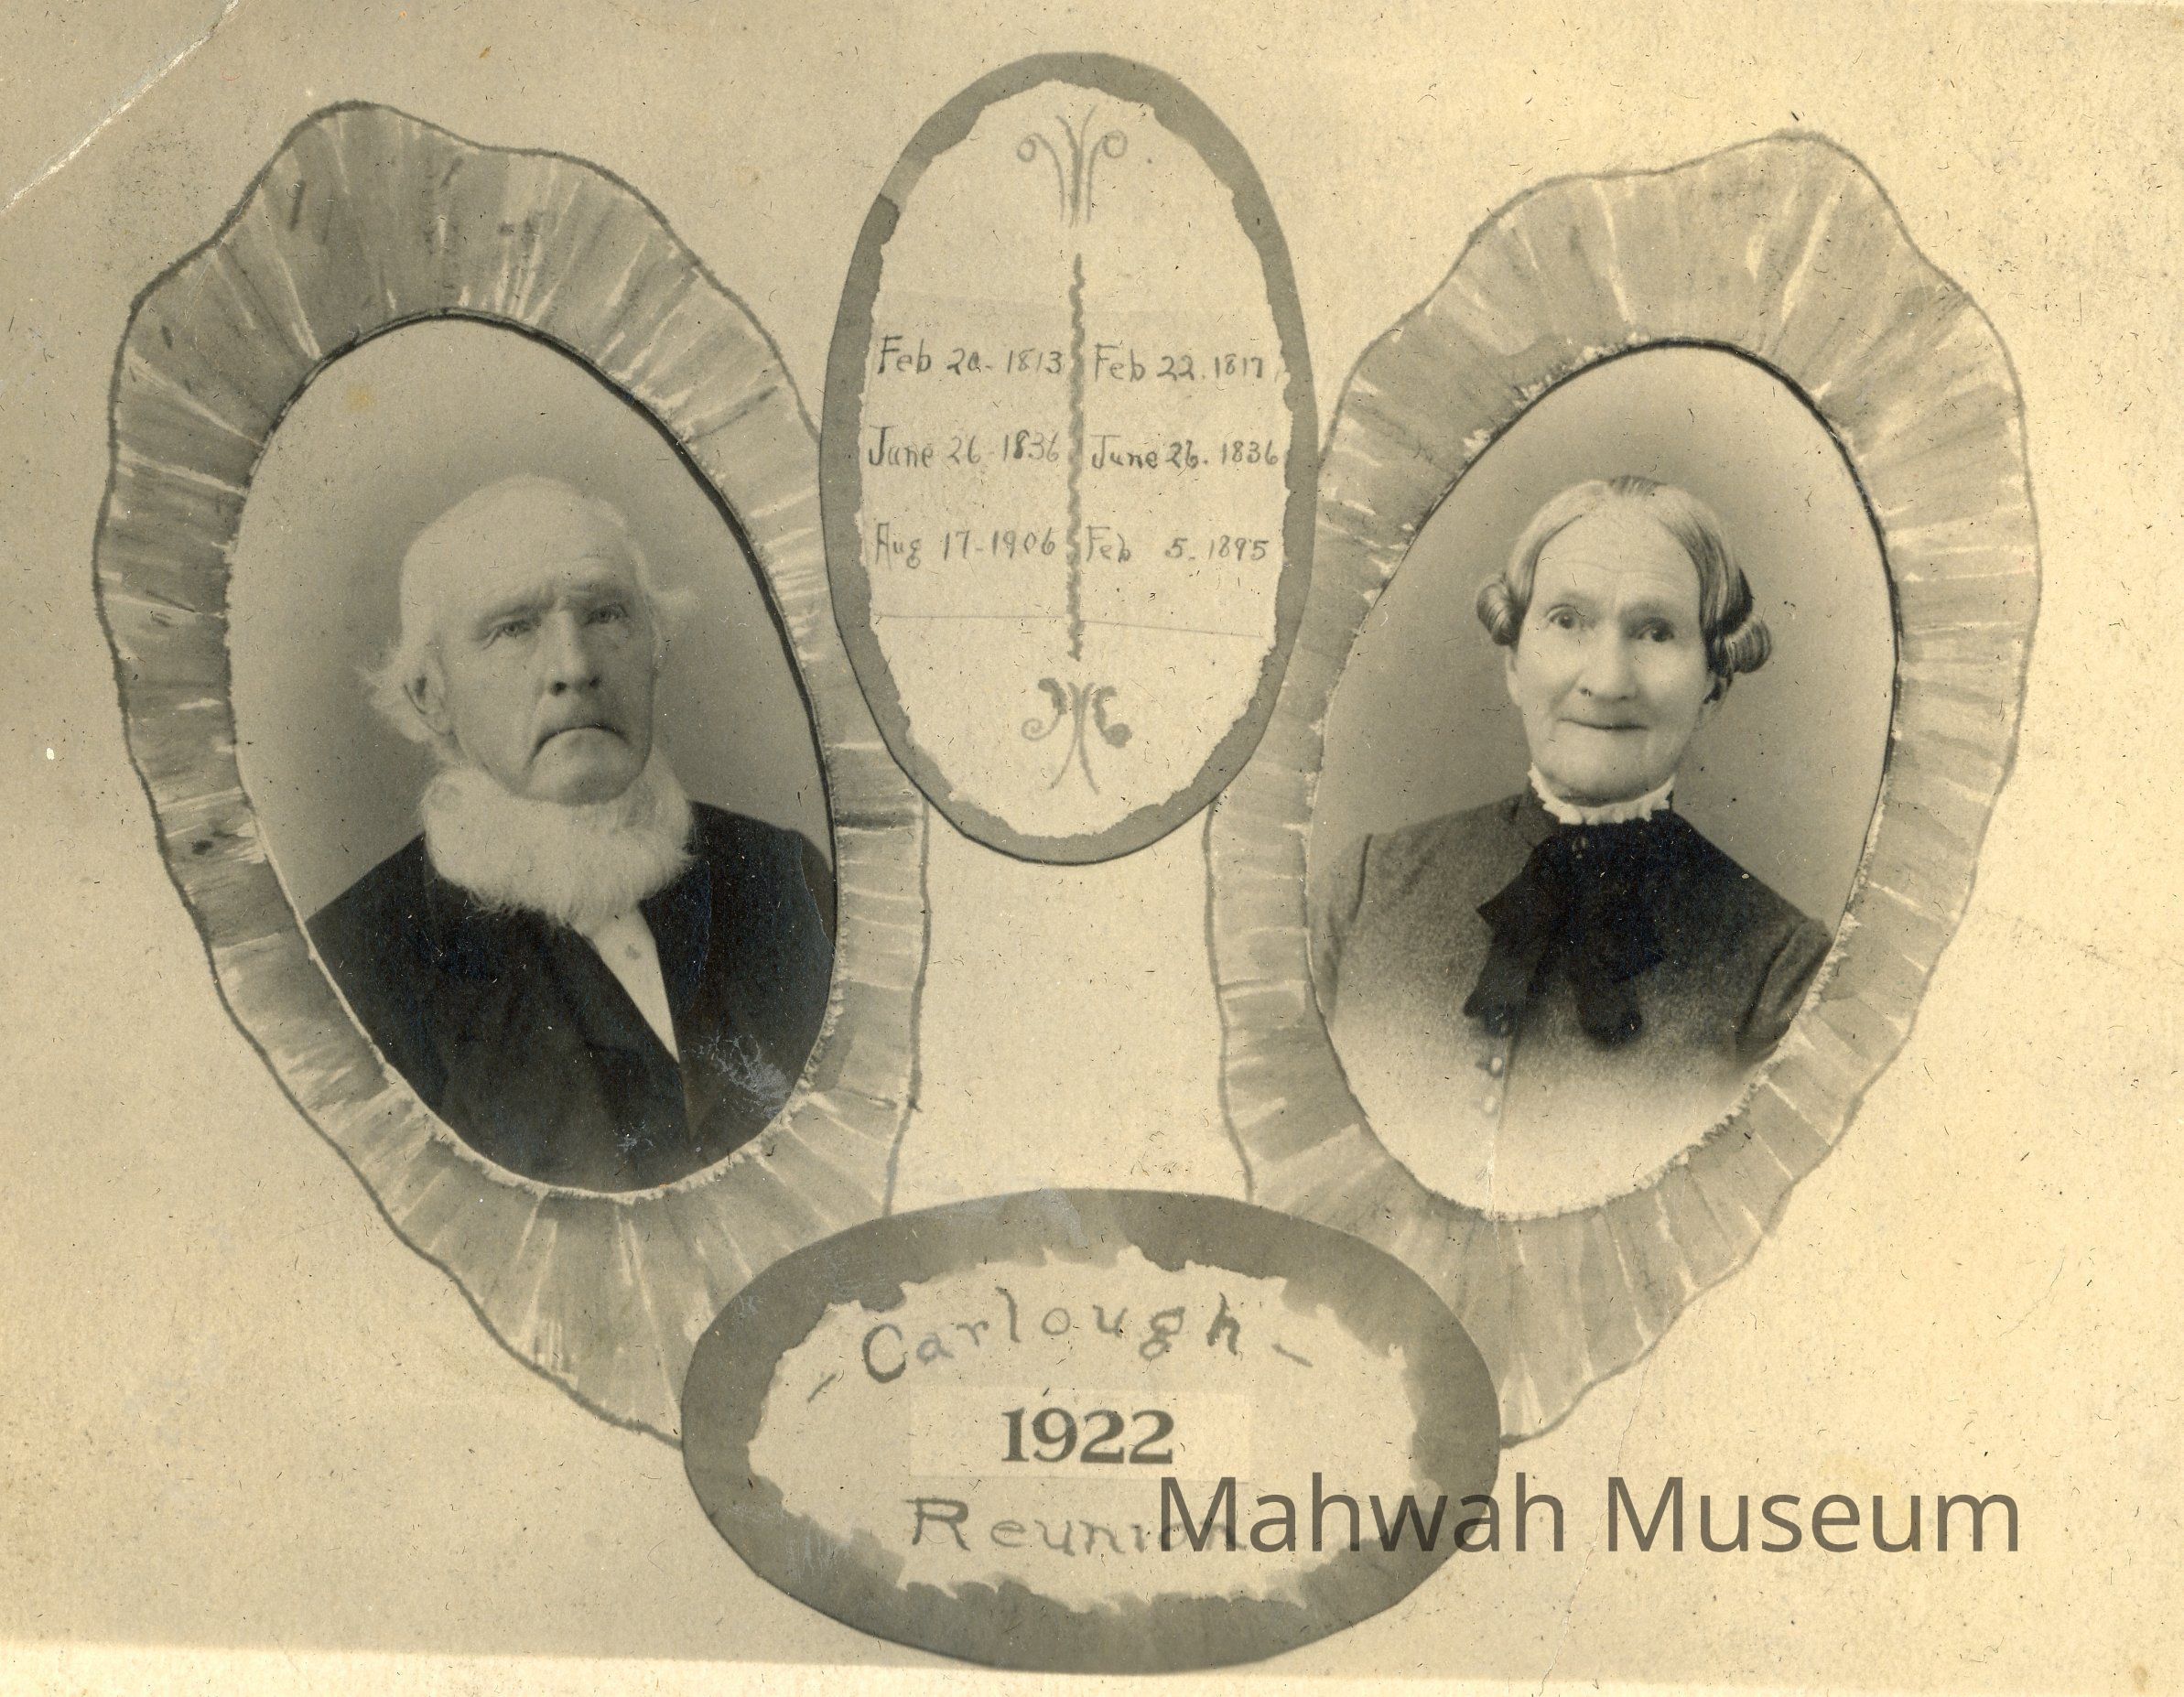 Feb 20-1813 Feb 22.1817
June 26-1836 June 26.1836
Aug 17-1906 Feb 5-1895
-Carlough-
1922
Reunion
Mahwah Museum